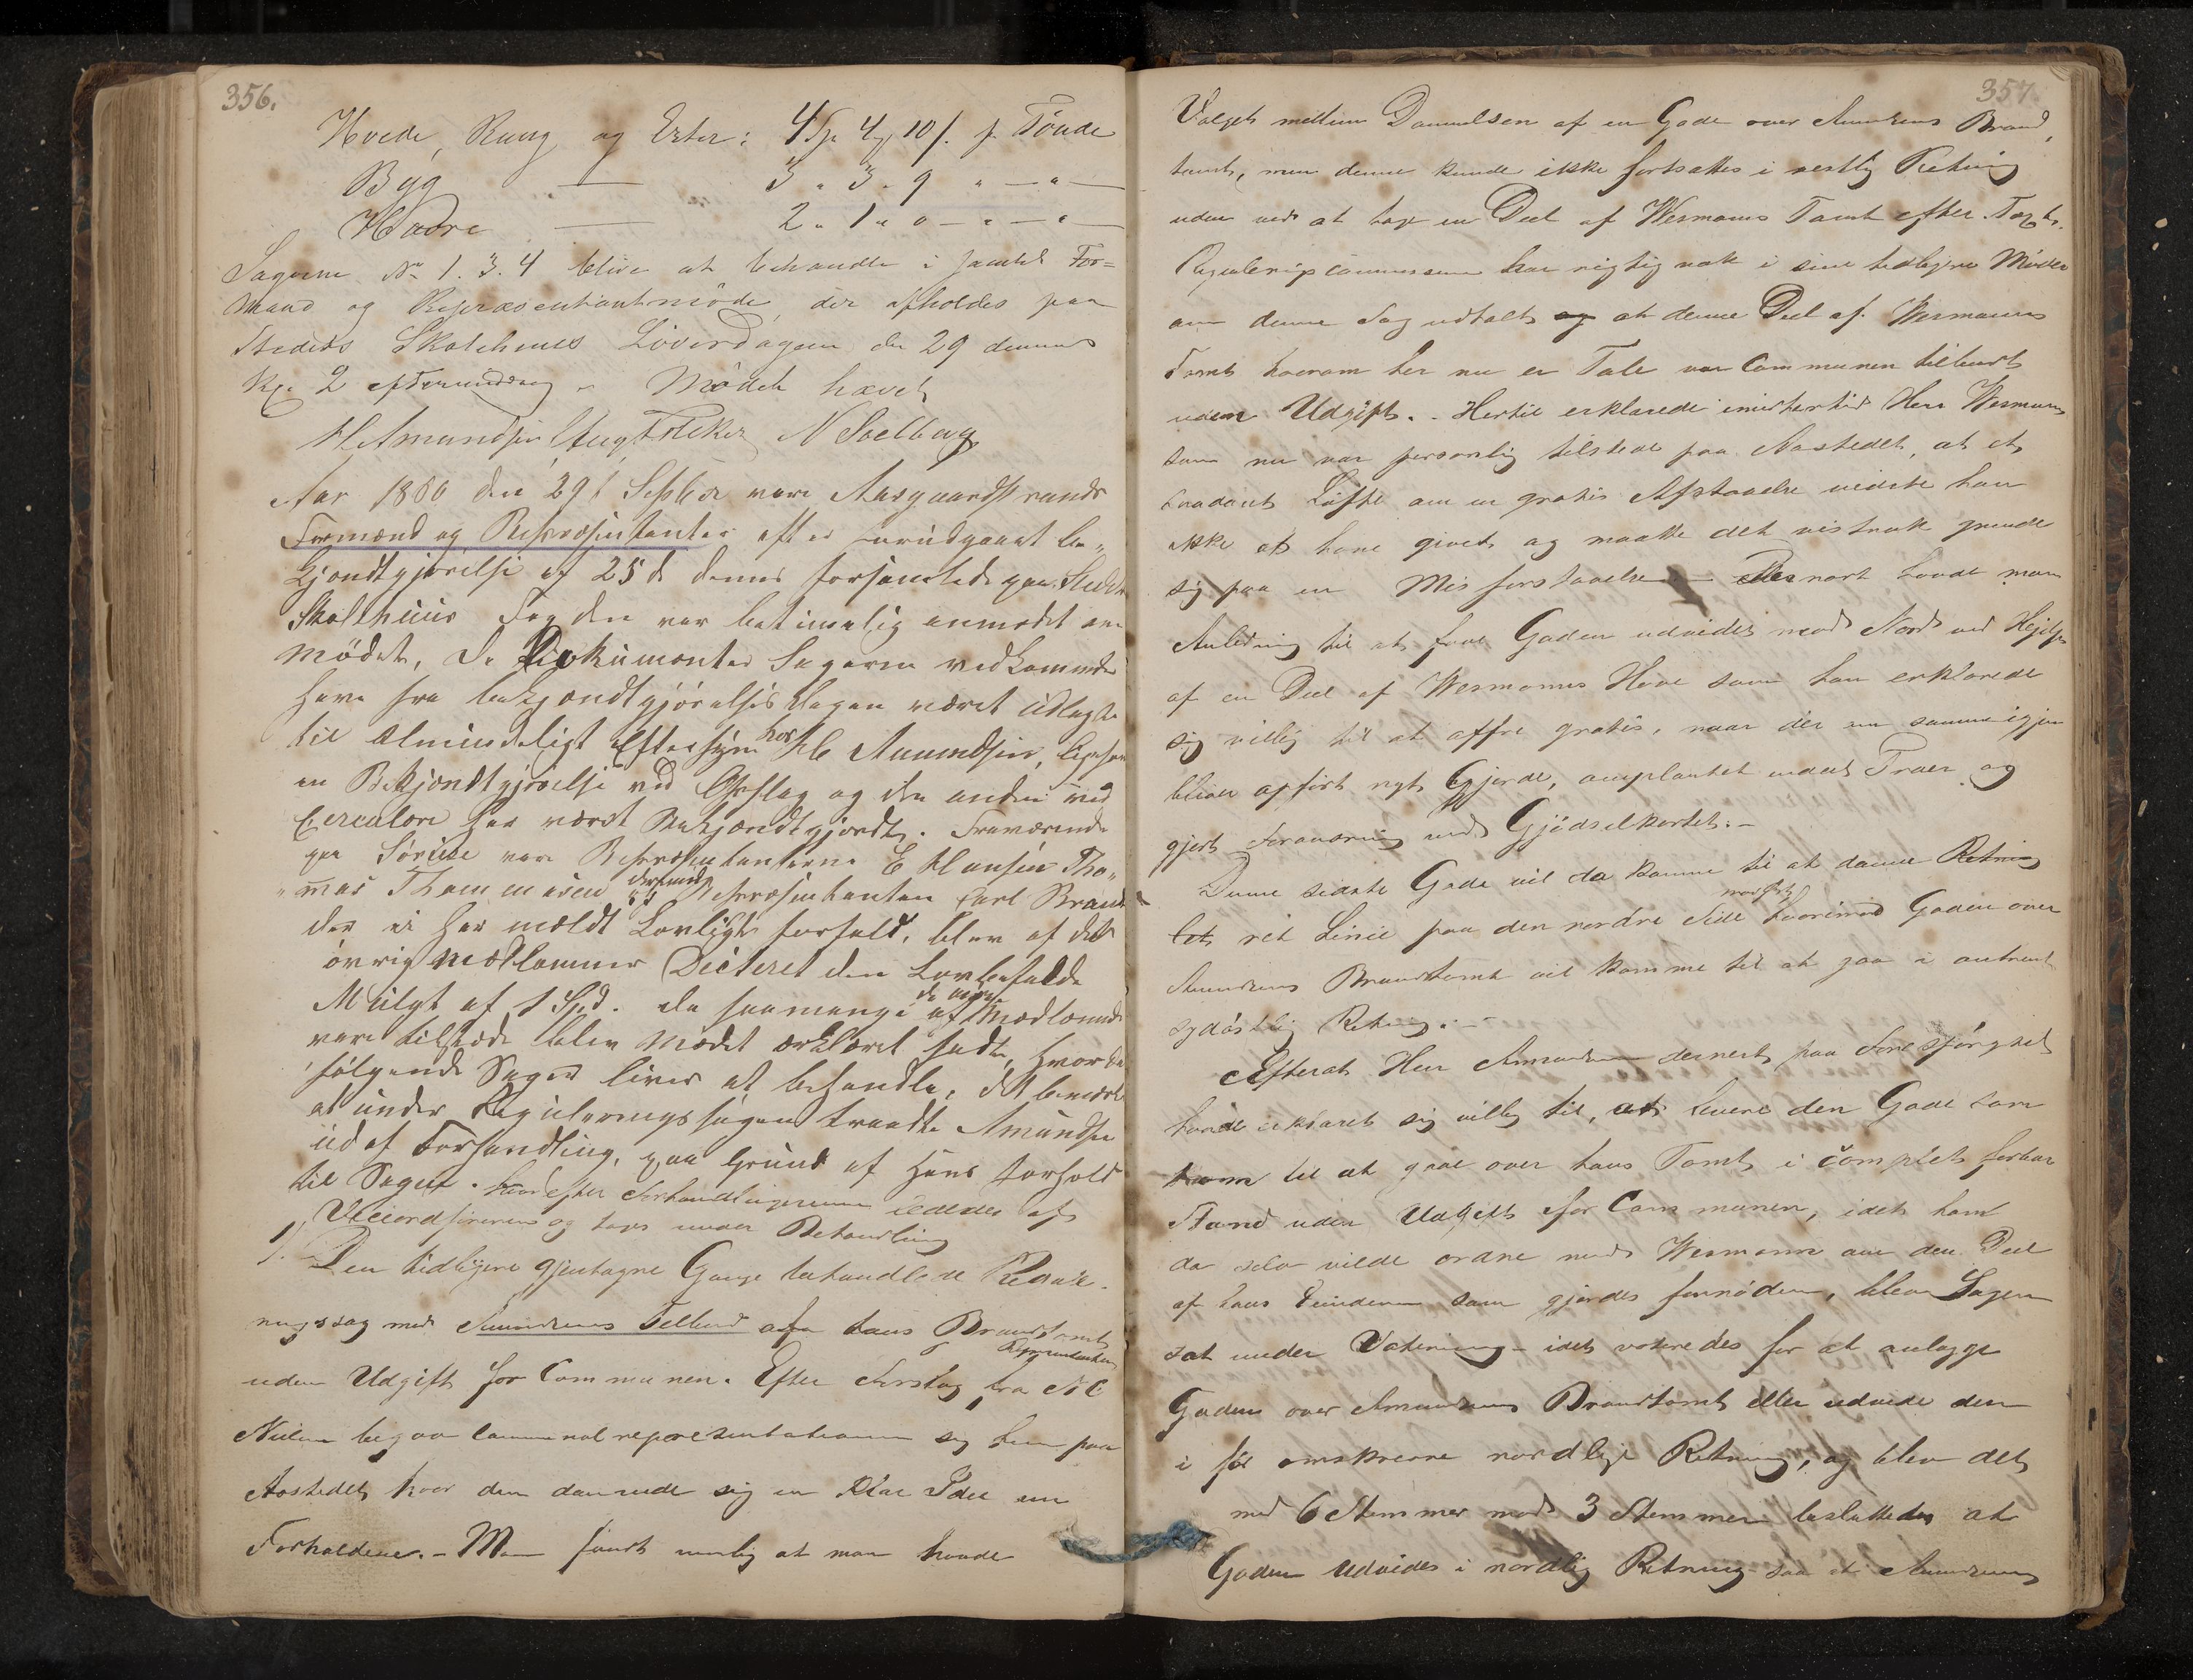 356.
Hvede, Rung og Erter: 4 Sp 4 10 s. p Tønde
Byg — 3 " 3 " 9 " — " —
Havre — 2 " 1 " 0 — " — " —
Sagerne No 1. 3. 4 blive at behandle i samlet For=
mand og Repræsentantmøde, der afholdes paa
Stedets Skolehuus Løverdagen den 29 dennes
Kl. 2 eftermiddag – Mødet hævet
H Amundsen Aug Falcker N Soelberg
Aar 1860 den 29 Septbr vare Aasgaardstrands
Formænd og Repræsentanter efter forudgaaet be„
kjendtgjørelse af 25de dennes forsamlede paa Stedets
Skolehuus Fogden var betimelig anmodet om
Mødet, De Dokumenter Sagerne vedkommende
have fra bekjendtgjørelses Dagen været udlagte
til almindeligt Eftersyn hos H Amundsen, ligesom
en Bekjendtgjørelse ved Opslag og den anden ved
Cerculære har været Bekjendtgjordt. Fraværende
paa Søreise vare Repræsentanterne E Hansen Tho„
„mas Thommesen derimod Repræsentanten Carl Brandt
der ei har mældt Lovligt forfald, blev af de
øvrig Medlemmer Dicteret den Lovbefalede
Mulgt af 1 Spd. da saamange af de øvrige Medlemmer
vare tilstede blev Mødet erklæret sadt, hvorda
følgende Sager bliver at behandle, det bemærkes
at under Reguleringssagen traadte Amundsen
ud af Forhandling, paa Grund af hans Forhold
til Sagen. hvorefter Forhandlingerne lededes af
Viceordføreren og toges under Behandling
1). Den tidligere gjentagne Gange behandlede Regule-
ringssag med Amundsens Tilbud af hans Brandtomt
uden Udgift for Communen. Efter Forslag fra Repræsentanten N C
Nielsen begav Communalrepresentationen sig hen paa
Aastedet hvor den dannede sig en klar Idee om
Forholdene. – Man fandt nemlig at man havde
357.
Valget mellem Dannelsen af en Gade over Amundsens Brand„
tomt, men denne kunde ikke fortsættes i vestlig Retning
uden ved at tage en Deel af Wesmanns Tomt efter Taxt.
Reguleringscommissionen har rigtig nok i sine tidligere Møder
om denne Sag udtalt at denne Deel af Wesmanns
Tomt hvorom her nu er Tale var Communen tilbudt
uden Udgift. – Hertil erklærede imidlertid Herr Wesmann
som nu var personlig tilstede paa Aastedet, at et
saadant Løfte om en gratis Afstaaelse vidste han
ikke at have givet og maatte det vistnok grunde
sig paa en Misforstaaelse – Dernæst havde man
Anledning til at faae Gaden udvidet mod Nord ved Hjelp
af en Deel af Wesmanns Have som han erklærede
sig villig til at offre gratis, naar der om samme igjen
bliver opført nyt Gjerde, omplantet endeel Træer og
gjort Forandring med Gjødselkortet. –
Denne sidste Gade vil da komme til at danne Retning
let ret Linie paa den nordre Side hvorimod Gaden over
Amundsens Brandtomt vil komme til at gaa i
sydøstlig Retning. –
Efterat Herr Amundsen dernest paa Forespørgsel
havde erklæret sig villig til, at levere den Gade som
kom til at gaae over hans Tomt i complet farbar
Stand uden Udgift for Communen, idet han
da selv vilde ordne med Wesmann om den Deel
af hans Eiendom som gjordes fornøden, blev Sagen
sat under Votering – idet voteredes for at anlægge
Gaden over Amundsens Brandtomt eller udvide den
i før omskrevne nordlige Retning, og blev det
med 6 Stemmer mod 3 Stemmer besluttedes at
Gaden udvides i nordlig Retning saa at Amundsens